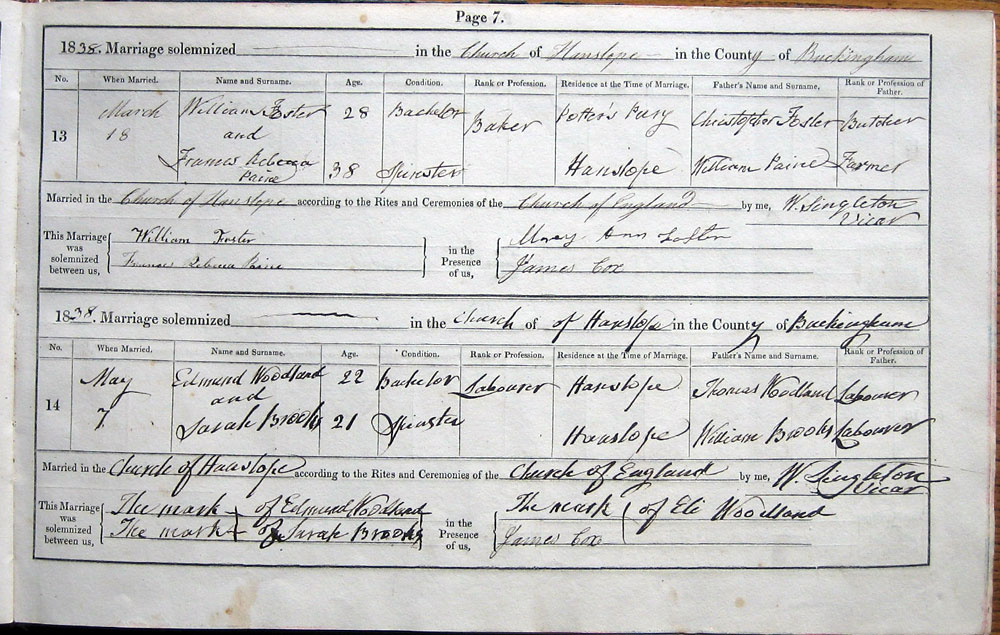 Page 7.
1838. Marriage solemnized in the Church of Hanslope in the County of Buckingham
No. When Married. Name and Surname. Age. Condition. Rank or Profession. Residence at the Time of Marriage. Father's Name and Surname. Rank or Profession of Father.
13 March 18 William Foster and Frances Rebecca Paine 28 38 Bachelor Spinster Baker Potters Pury Hanslope Christopher Foster William Paine Butcher Farmer
Married in the Church of Hanslope according to the Rites and Ceremonies of the Church of England by me, W. Singleton Vicar
This Marriage was solemnized between us, William Foster Frances Rebecca Paine in the Presence of us, Mary Ann Foster James Cox
1838. Marriage solemnized in the Church of of Hanslope in the County of Buckingham
No. When Married. Name and Surname. Age. Condition. Rank or Profession. Residence at the Time of Marriage. Father's Name and Surname. Rank or Profession of Father.
14 May 7. Edmund Woodland and Sarah Brooks 22 21 Bachelor Spinster Labourer Hanslope Hanslope Thomas Woodland William Brooks Labourer Labourer
Married in the Church of Hanslope according to the Rites and Ceremonies of the Church of England by me, W. Singleton Vicar
This Marriage was solemnized between us, The mark of Edmund Woodland The mark of Sarah Brooks in the Presence of us, The mark of Eli Woodland James Cox